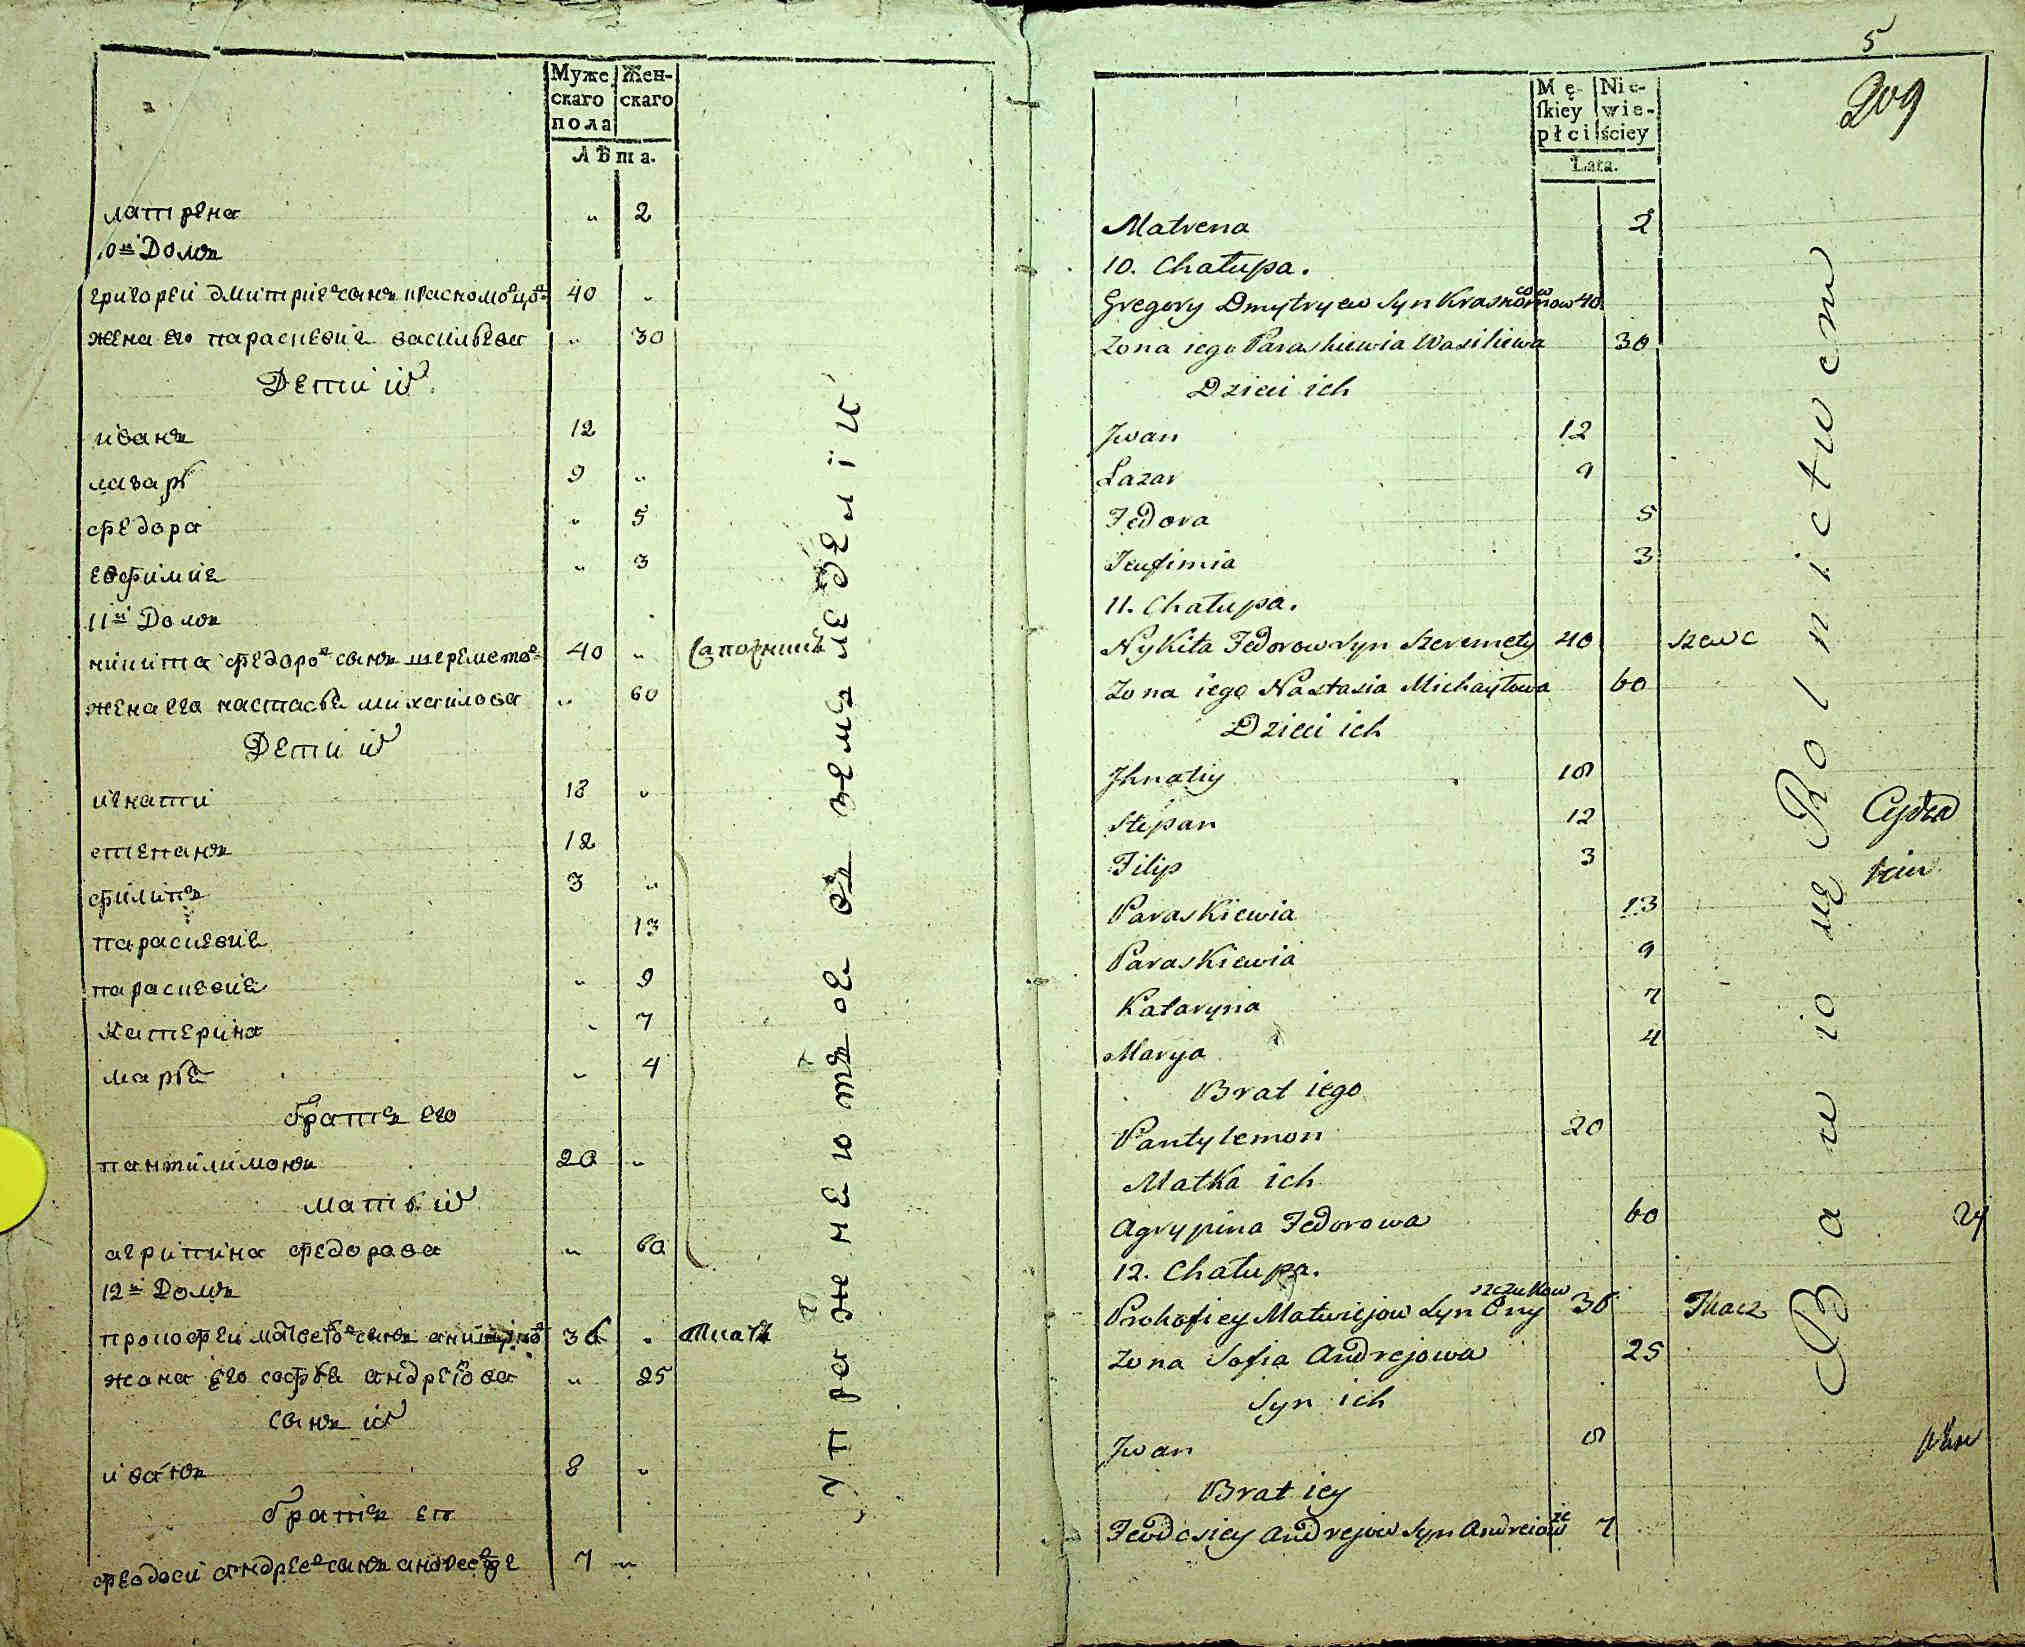 Муже-
скаго
пола
Жен-
скаго
Лѣта.
матрена „ 2
10й Домъ
григореи дмитриевъ сынъ краскомовцовъ 40 „
жена его параскевиѣ васильева „ 30
Дети их
иванъ 12
лазарь 9 „
федора „ 5
евфимиѣ „ 3
11й Домъ
никита федоровъ сынъ шереметовъ 40 „ Сапожникъ
жена его настасьѣ михаилова „ 60
Дети их
игнатий 18 „
степанъ 12
филипъ 3 „
параскевиѣ 13
параскевиѣ „ 9
катерина „ 7
марьѣ „ 4
братъ его
пантилимонъ 20 „
мать их
агрипина федорава „ 60
12й Домъ
прокофеи матвеевъ сынъ 36 „ ткачъ
жона его софьѣ андреева „ 25
сынъ их
иванъ 8 „
братъ еѣ
феодоси андреевъ сынъ 7 „
упражнеютъсе въ земледелій
5
209
Mę-
skiey
płci
Nie-
wie-
ściey
Lata.
Matrena 2
10. Chałupa.
Gregory Dmytryew Syn Kraskomow cow 40
Zona iego Paraskiewia Wasiliewa 30
Dzieci ich
Jwan 12
Łazar 9
Fedora 5
Jeufimia 3
11. Chałupa.
Nykita Fedorow Syn Szeremety 40 Szewc
Zona iego Nastasia Michayłowa 60
Dzieci ich
Jhnatiy 18
Stepan 12
Filip 3
Paraskiewia 13
Paraskiewia 9
Kataryna 7
Marya 4
Brat iego
Pantylemon 20
Matka ich
Agrypina Fedorowa 60
12. Chałupa.
Prokofiey Matwiejow Syn Ony szczukow 36 Tkacz
Zona Sofia Andrejowa 25
Syn ich
Jwan 8
Brat iey
Feodosiey Andrejow Syn 7
Bawią się Rolnictwem